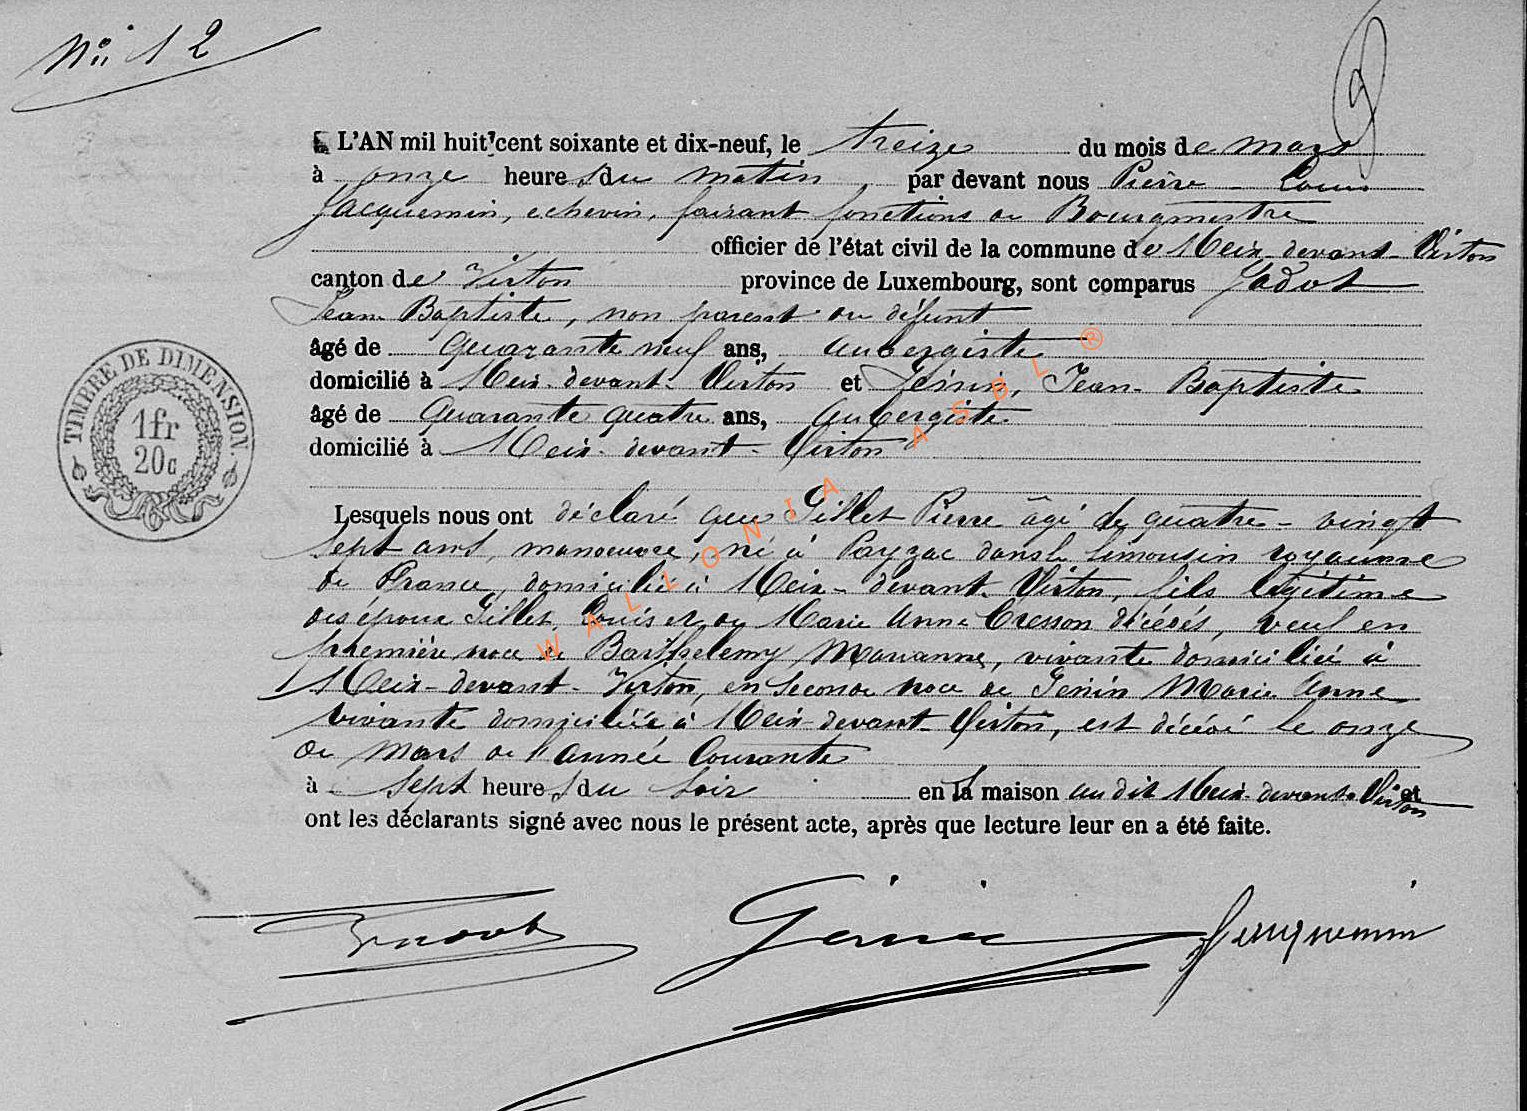 N° 12
L'AN mil huit cent soixante et dix-neuf, le treize du mois de mars
à onze heures du matin, par devant nous Pierre Louis
Jacquemin, echevin, faisant fonctions de Bourgmestre
officier de l'état civil de la commune de Meix-devant-Virton
canton de Virton province de Luxembourg, sont comparus Jadot
Jean Baptiste, non parent au défunt
âgé de quarante neuf ans, aubergiste
domicilié à Meix-devant-Virton et Génin, Jean-Baptiste
âgé de quarante quatre ans, aubergiste
domicilié à Meix-devant-Virton
Lesquels nous ont déclaré que Gillet Pierre âgé de quatre-vingt
sept ans, manoeuvre, né à Payzac dans le Limousin royaume
de France, domicilié à Meix-devant-Virton, fils légitime
des époux Gillet, Louis et de Marie Anne Cresson décédés, veuf en
première noce de Barthelemy Marianne, vivante domiciliée à
Meix-devant-Virton, en seconde noce de Génin Marie Anne
vivante domiciliée à Meix-devant-Virton, est décédé le onze
de mars de l'année courante
à sept heures du soir en la maison au dit Meix-devant-Virton et
ont les déclarants signé avec nous le présent acte, après que lecture leur en a été faite.
Génin Jacquemin
TIMBRE DE DIMENSION.
1fr
20c
WALLONIA ASBL ®